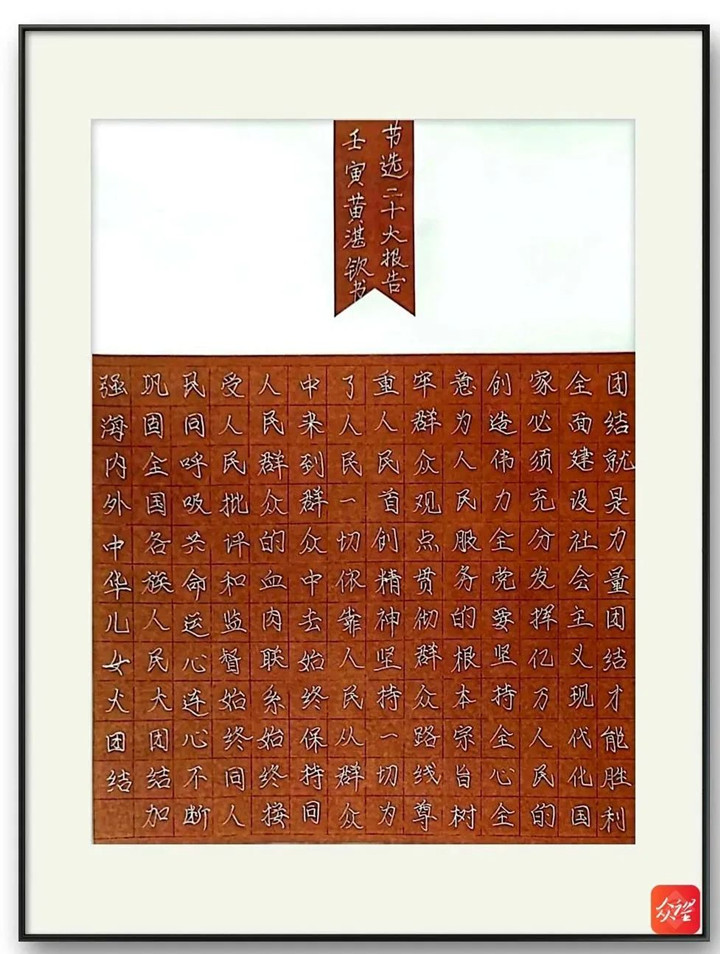 节选二十大报告
壬寅黄湛钦书
团结就是力量团结才能胜利
全面建设社会主义现代化国
家必须充分发挥亿万人民的
创造伟力全党要坚持全心全
意为人民服务的根本宗旨树
牢群众观点贯彻群众路线尊
重人民首创精神坚持一切为
了人民一切依靠人民从群众
中来到群众中去始终保持同
人民群众的血肉联系始终接
受人民批评和监督始终同人
民同呼吸共命运心连心不断
巩固全国各族人民大团结加
强海内外中华儿女大团结
众望